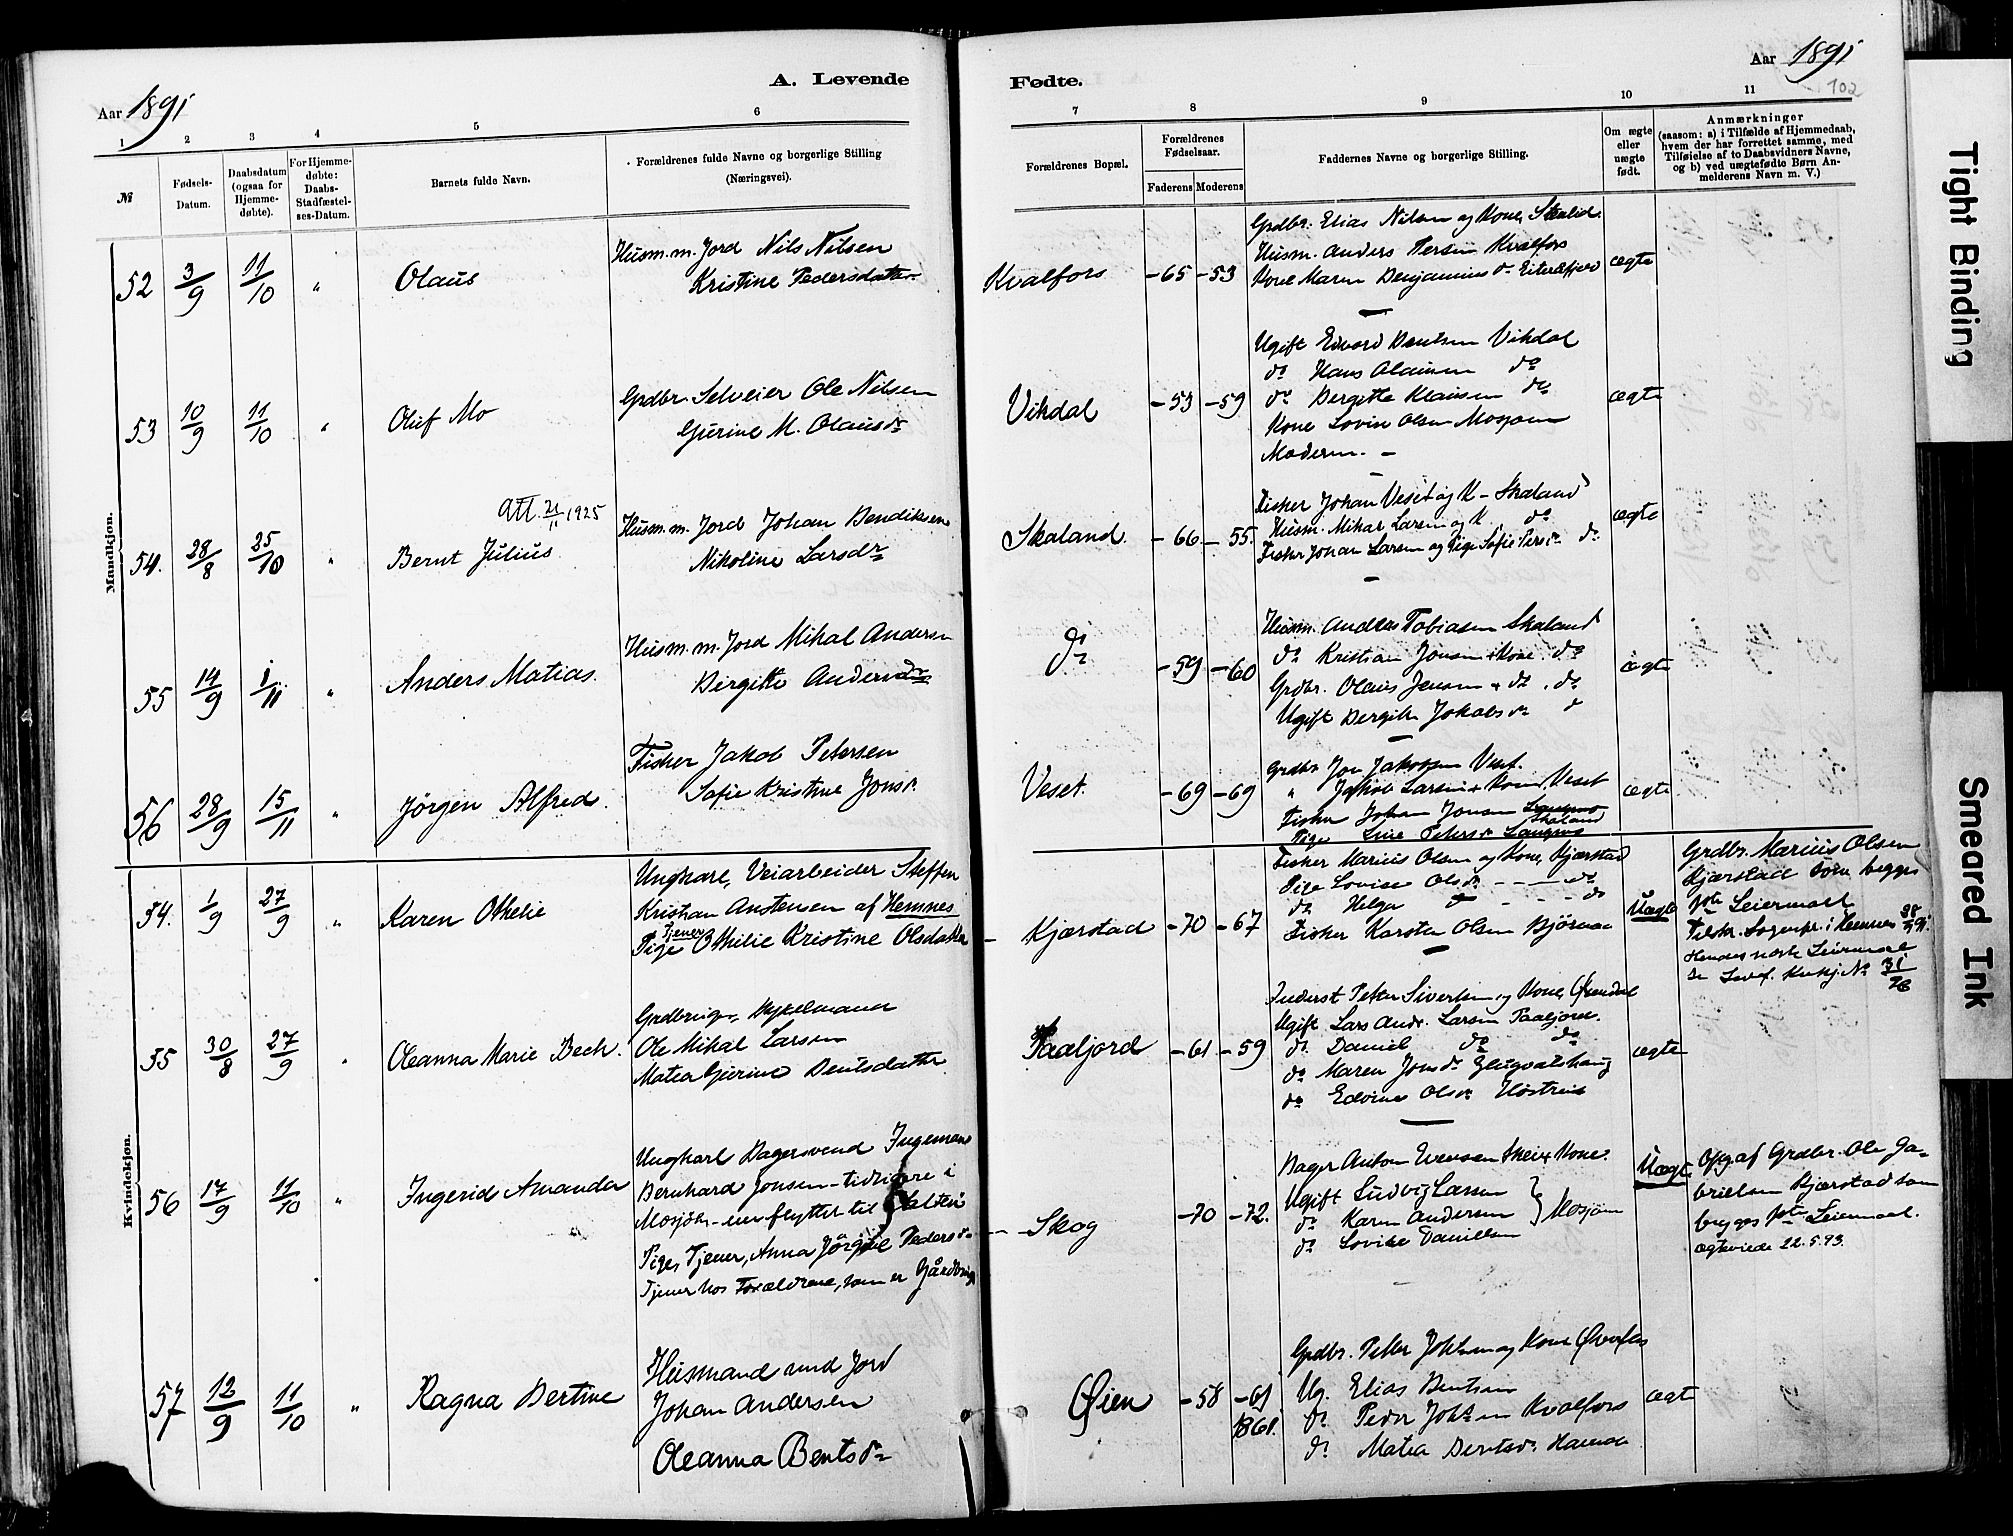 A. Levende
Fødte.
Aar 1891
Aar 1891
102
1 2 3 4 5 6
7 8 9 10 11
№
Fødsels-
Datum.
Daabsdatum
(ogsaa for
Hjemme-
døbte).
For Hjemme-
døbte:
Daabs-
Stadfæstel-
ses-Datum.
Barnets fulde Navn.
Forældrenes fulde Navne og borgerlige Stilling
(Næringsvei).
Forældrenes Bopæl.
Forældrenes
Fødselsaar.
Faderens Moderens
Faddernes Navne og borgerlige Stilling.
Om ægte
eller
uægte
født.
Anmærkninger
(saasom: a) i Tilfælde af Hjemmedaab,
hvem der har forrettet samme, med
Tilføielse af to Daabsvidners Navne,
og b) ved uægtefødte Børn An-
melderens Navn m. V.)
Mandkjøn.
52 3/9 11/10 " Olaus
Husm. m. Jord Nils Nilsen
Kristine Pedersdatter
Kvalfors -65 -53
Grdbr. Elias Nilsen og Kone, Skalid
Husm. Anders Persen Kvalfors
Kone Maren Benjamins dr Eiteråfjord
ægte
53 10/9 11/10 " Oluf Mo
Grdbr. Selveier Ole Nilsen
Gurine M. Olausdr
Vikdal -53 -59
Ugift Edvard Bentsen Vikdal
do Hans Olaussen do
do Bergitte Klausen do
Kone Lovise Olsen Mosjøen
Moderen. -
ægte
Att. 21/11 1925
54. 28/8 25/10 " Bernt Julius
Husm. m. Jord Johan Bendiksen
Nikoline Larsdr
Skaland -66 -55.
Fisker Johan Veset og K - Skaland
Husm. Mikal Larsen og K do
Fisker Johan Larsen og Pige Sofie Persdr do
ægte
55 14/9 1/11 " Anders Matias.
Husm. m. Jord Mikal Andersen
Birgitte Andersdr
do -59 -60
Husm. Andreas Tobiasen Skaland
do Kristian Jonsen + Kone. do
Grdbr. Olaus Jensen + do. do
Ugift Bergitte Jakobsdr do
ægte
56 28/9 15/11 " Jørgen Alfred.
Fisker Jakob Petersen
Sofie Kristine Jonsdr
Veset. -69 -69
Grdbr. Jon Jakobsen Veset.
" Jakob Larsen + Kone, Veset
Fisker Johan Jonsen Skaland
Pige Line Petersdr
ægte
Kvindekjøn.
54. 1/9 27/9 " Karen Othelie
Ungkarl, Veiarbeider Steffen
Kristian Anstensen af Hemnes
Tjener
Pige Othilie Kristine Olsdatter
Kjærstad -70 -67
Fisker Marius Olsen og Kone, Kjærstad
Pige Lovise Olsdr - - - do
do Helga do - - - do
Fisker Karsten Olsen
Uægte
Grdbr. Marius Olsen
Kjærstad som begges
1ste Leiermaal
35 30/8 27/9 " Oleanna Marie Bech.
Ole Mikal Larsen
Matea Gurine Bentsdatter
Paaljord -61 -59
Inderst Peter Sivertsen og Kone,
Ugift Lars Andr. Larsen Paaljord.
do Daniel do do
do Maren Jonsdr
do Edvine Olsdr
ægte
56 17/9 11/10 " Ingerid Amanda
Ungkarl Bagersvend Ingeman
Bernhard Jonsen - tidligere i
Mosjøen - nu flyttet til Salten
Pige, Tjener, Anna Jørgine Pedersdr
Tjener hos Forældrene, som er Gårdbrug.
Skog -70 -72.
Bager Anton Evensen Skei + Kone.
Ugift Ludvig Larsen
do Karen Andersen } Mosjøen
do Lovise Danielsen
Uægte
Opg. af Grdbr. Ole Ga-
brielsen Kjærstad som
begges 1ste Leiermaal.
ægteviede 22.5.93.
57 12/9 11/10 " Ragna Bertine
Husmand med Jord
Johan Andersen
Oleanna Bentsdr
Øien -58 -61
1861.
Grdbr. Petter Johnsen og Kone
Ug. Elias Bentsen
do Peder Johnsen Kvalfors
do Matea Bentsdr
ægte
Tight Binding
Smeared Ink